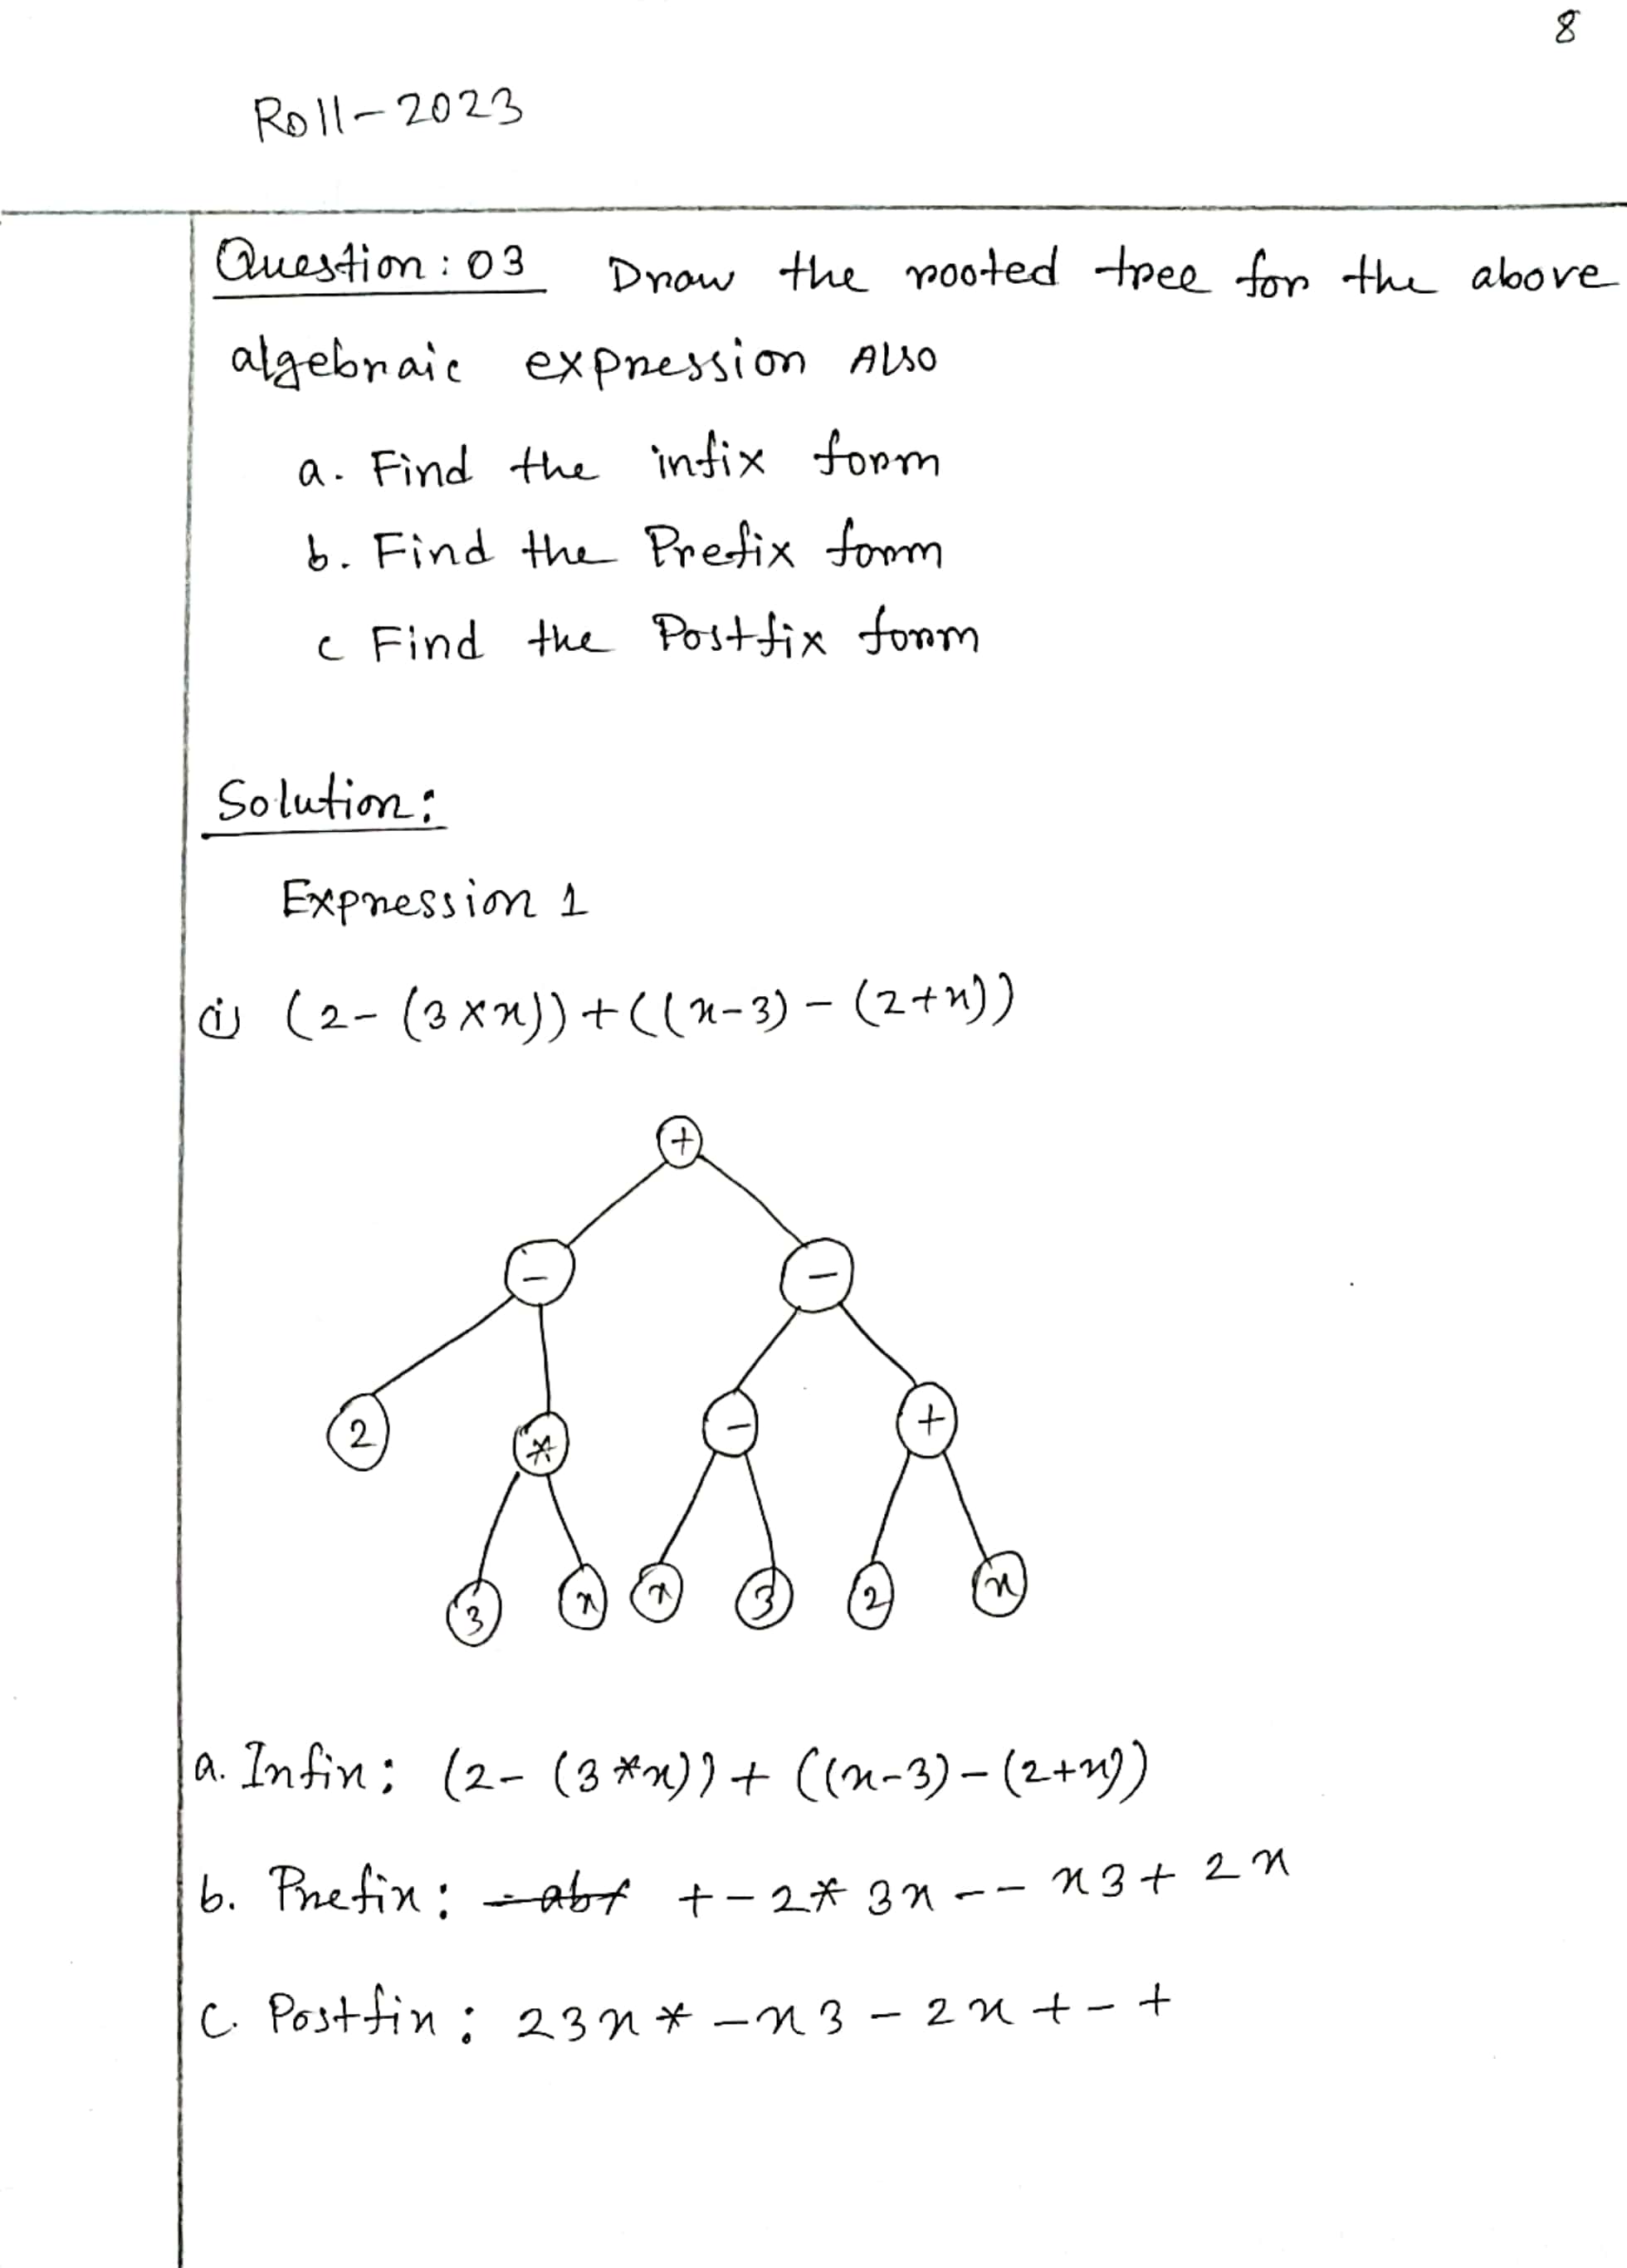 8
Roll-2023
Question: 03 Draw the rooted tree for the above
algebraic expression Also
a. Find the infix form
b. Find the Prefix form
c Find the Postfix form
Solution:
Expression 1
(i) (2-(3×x))+((x-3)-(2+x))
+
- -
2 * - +
3 x x 3 2 x
a. Infix: (2-(3*x))+((x-3)-(2+x))
b. Prefix: +-2*3x--x3+2x
c. Postfix: 23x*-x3-2x+-+